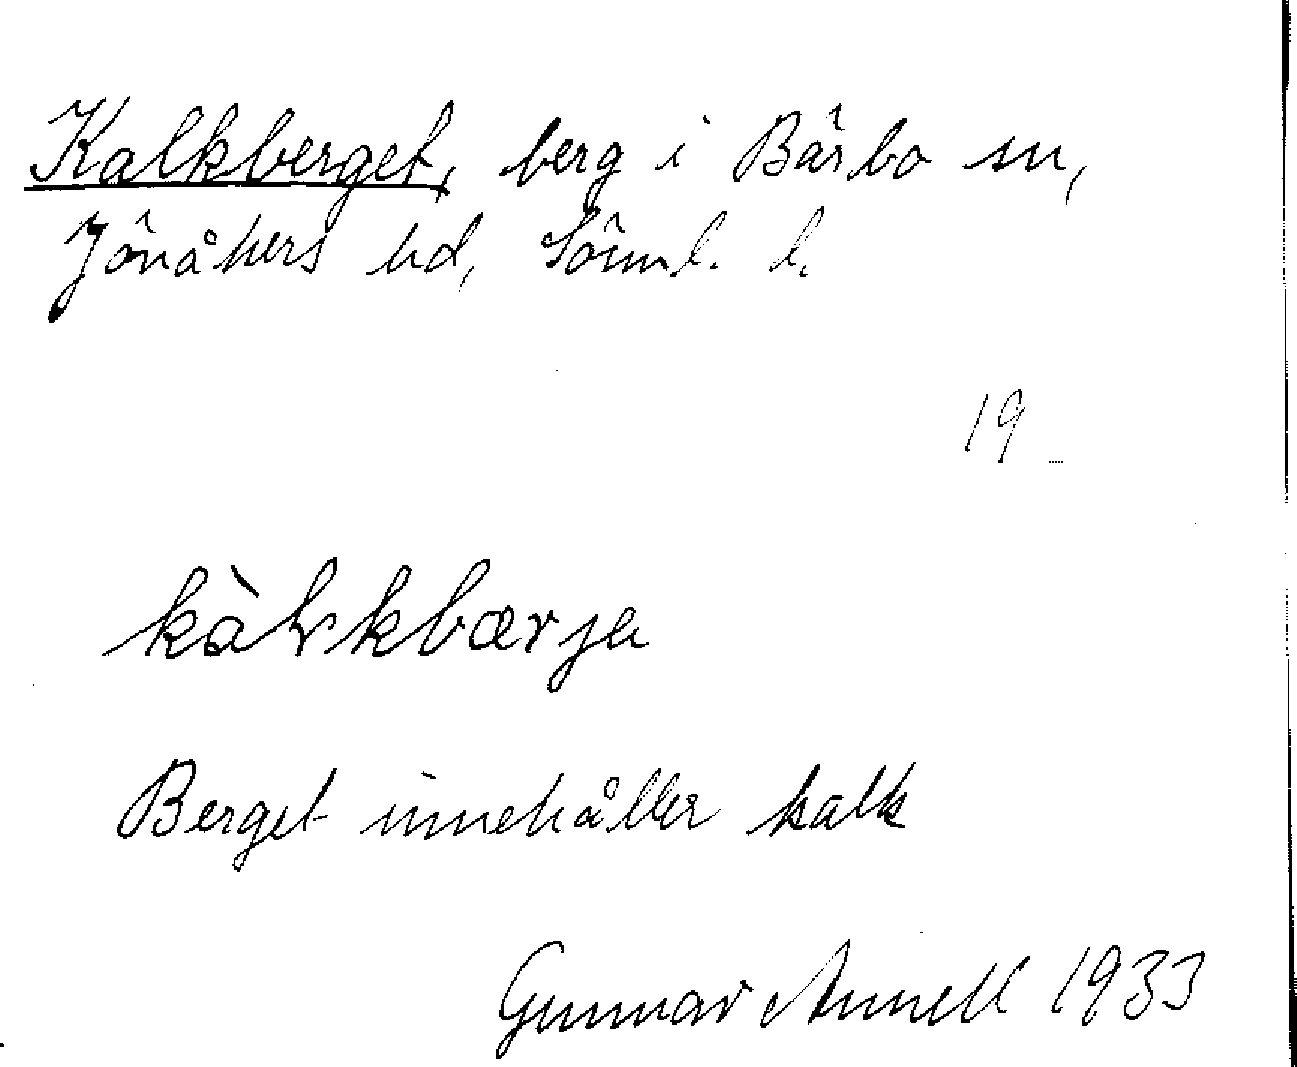 Kalkberget, berg i Bärbo sn,
Jönåkers hd, Sörml. l.
19
kàlkbærja
Berget innehåller kalk
Gunnar Annell 1933